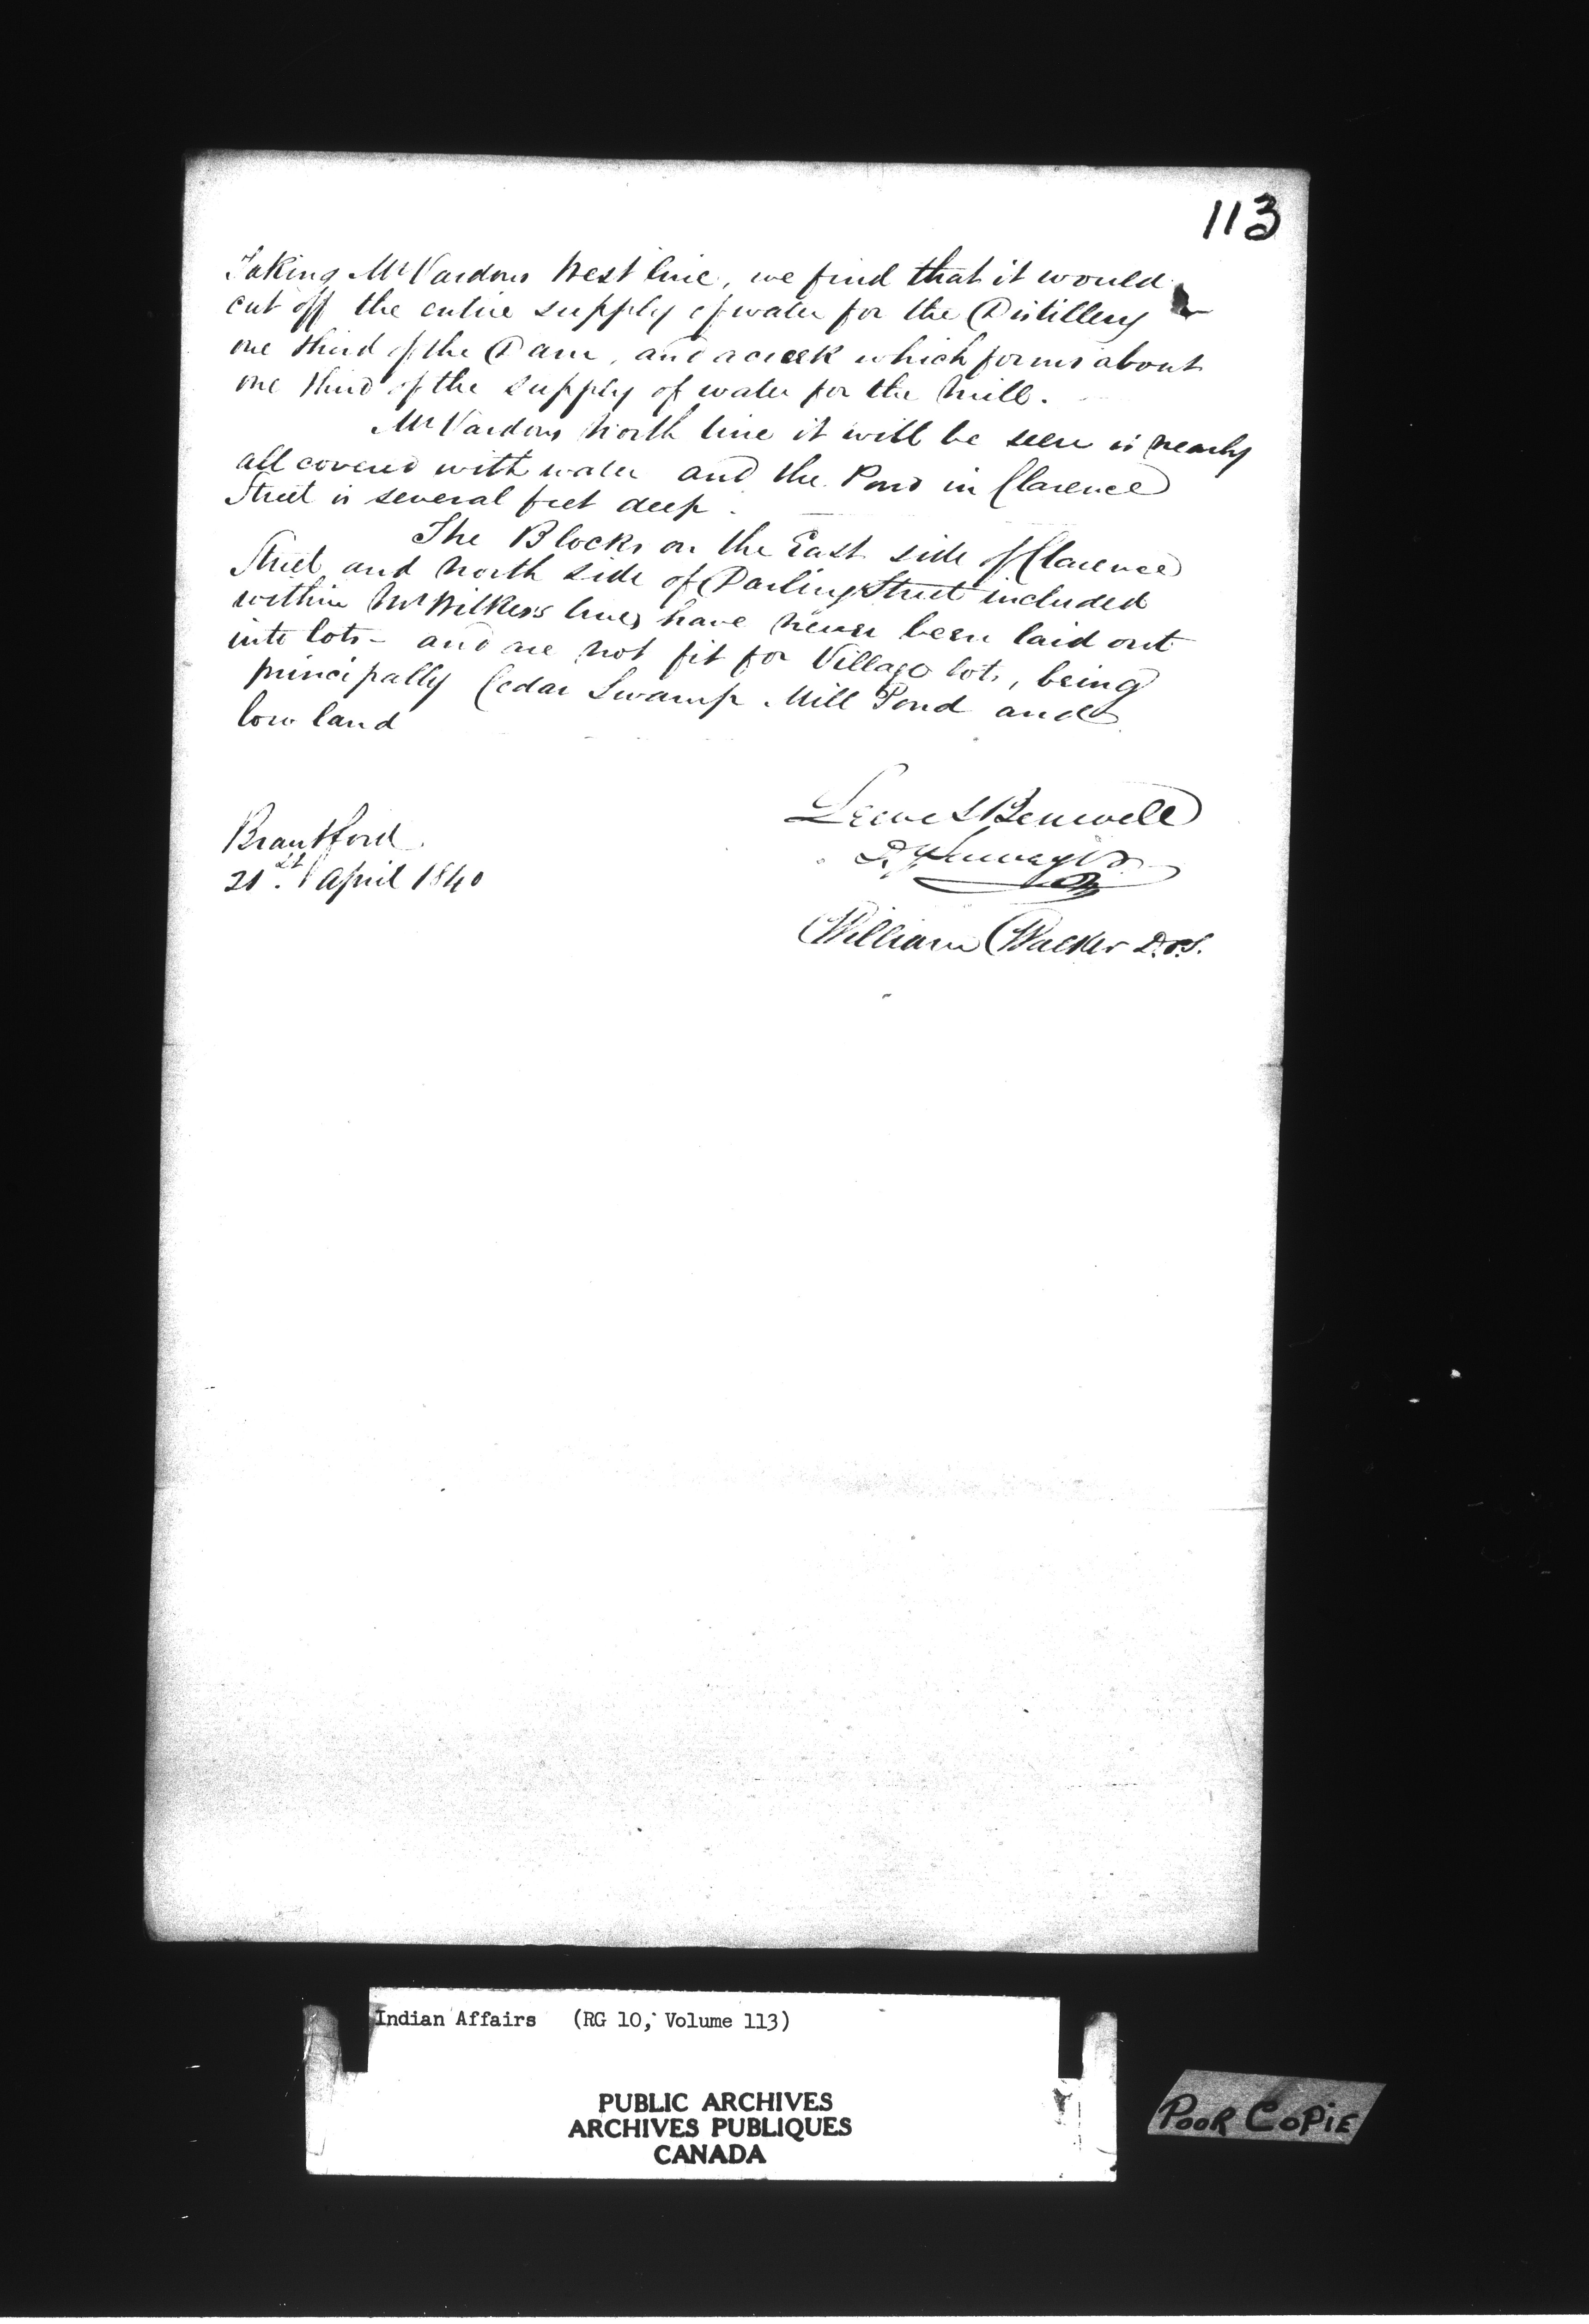 113
Taking Mr Vardons West line, we find that it would
cut off the entire supply of water for the Distillery
one third of the Dam, and a creek which forms about
one third of the supply of water for the Mill.
Mr Vardons North line it will be seen is nearly
all covered with water and the Pond in Clarence
Street is several feet deep.
The Blocks on the East side of Clarence
Street and North side of Darling Street included
within Mr Wilkes's lines have never been laid out
into lots - and are not fit for Village lots, being
principally Cedar Swamp, Mill Pond and
low land
Brantford
21st April 1840
Benwell
William Walker D.P.S.
Indian Affairs (RG 10, Volume 113)
PUBLIC ARCHIVES
ARCHIVES PUBLIQUES
CANADA
POOR COPIE